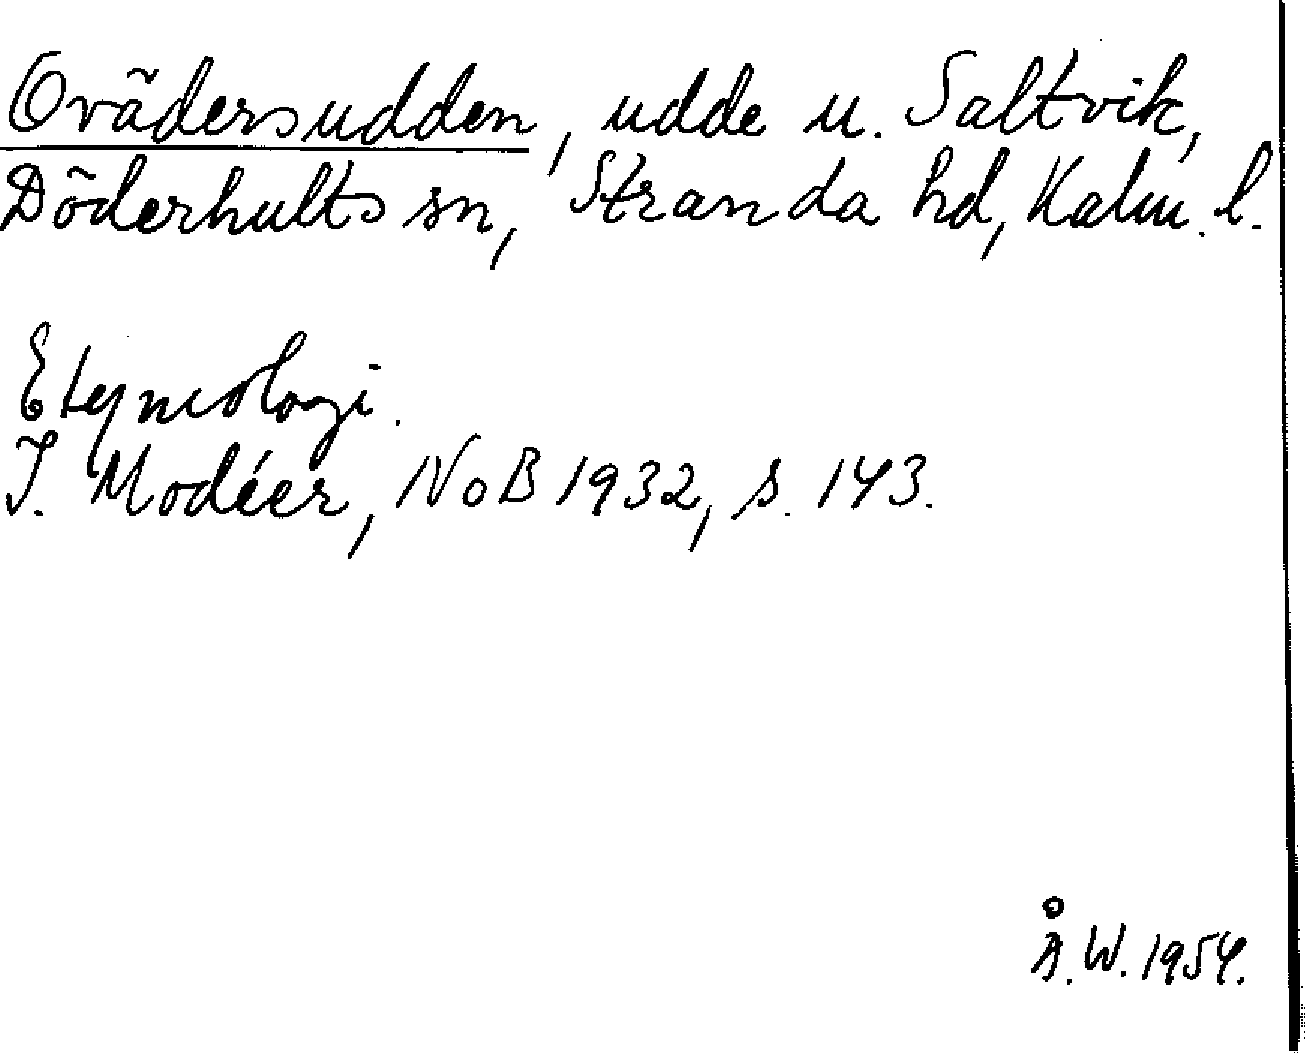 Ovädersudden, udde u. Saltvik,
Döderhults sn, Stranda hd, Kalm. l.
Etymologi.
I. Modéer, NoB 1932, s. 143.
Å. W. 1954.